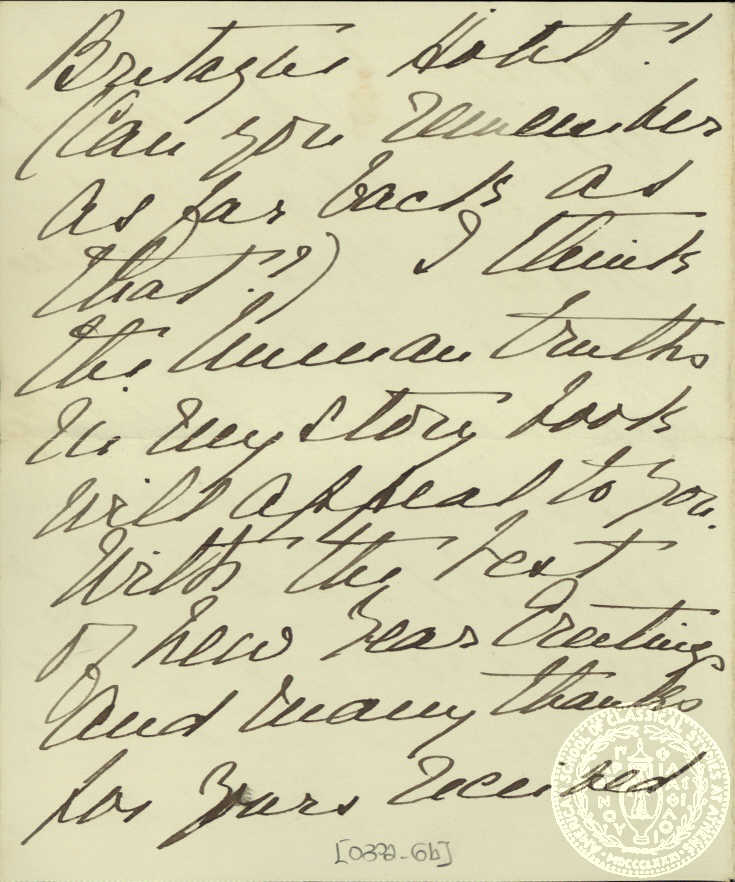 Bretagne Hotel!
(Can you remember
as far back as
that!?) I think
the human truths
in my story book
will appeal to you.
With the best
of New Year Greetings
and many thanks
for yours received
[0372-6b]
AMERICAN SCHOOL OF CLASSICAL STUDIES AT ATHENS
MDCCCLXXXI